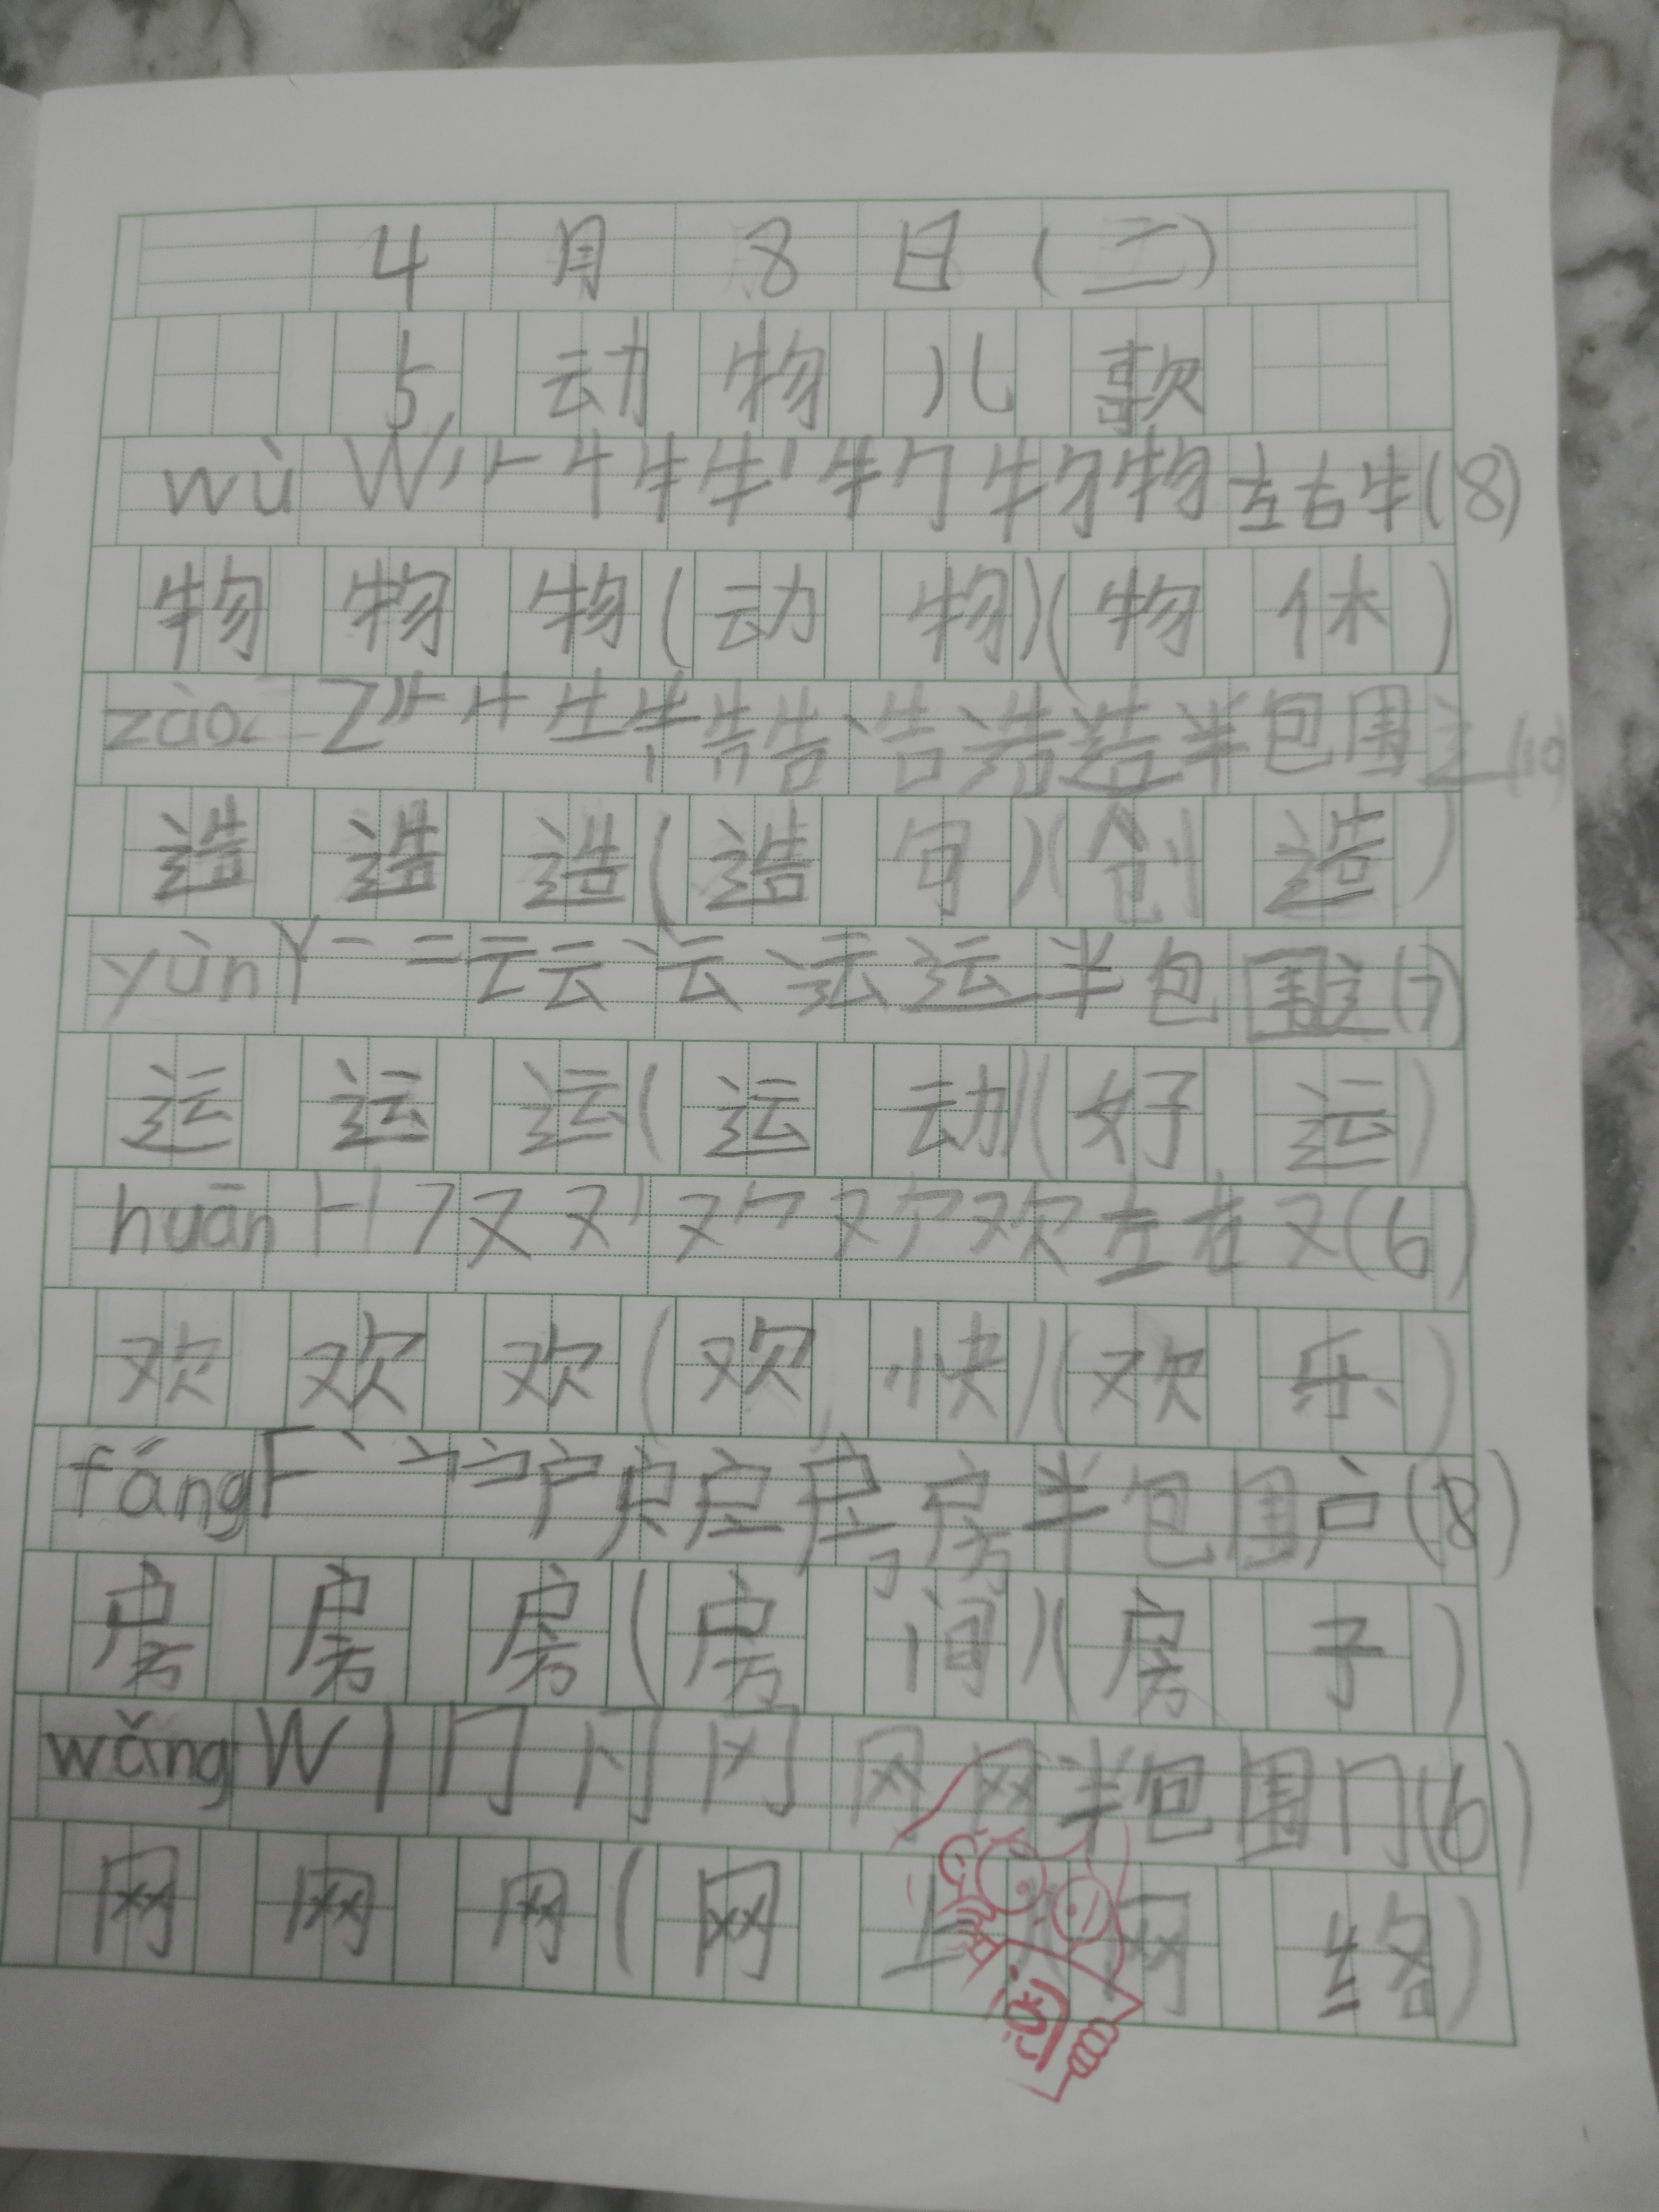 4月8日(二)
5动物儿歌
wù W 丿 牛 牛 物 左右 牛(8)
物物物(动物)(物体)
zào Z 丿 牛 告 造 半包围 辶(10)
造造造(造句)(创造)
yùn Y 一 二 云 云 运 半包围 辶(7)
运运运(运动)(好运)
huān H フ 又 欢 左右 又(6)
欢欢欢(欢快)(欢乐)
fáng F 丶 户 房 半包围 户(8)
房房房(房间)(房子)
wǎng W 丨 冂 网 半包围 冂(6)
网网网(网上)(网络)
阅